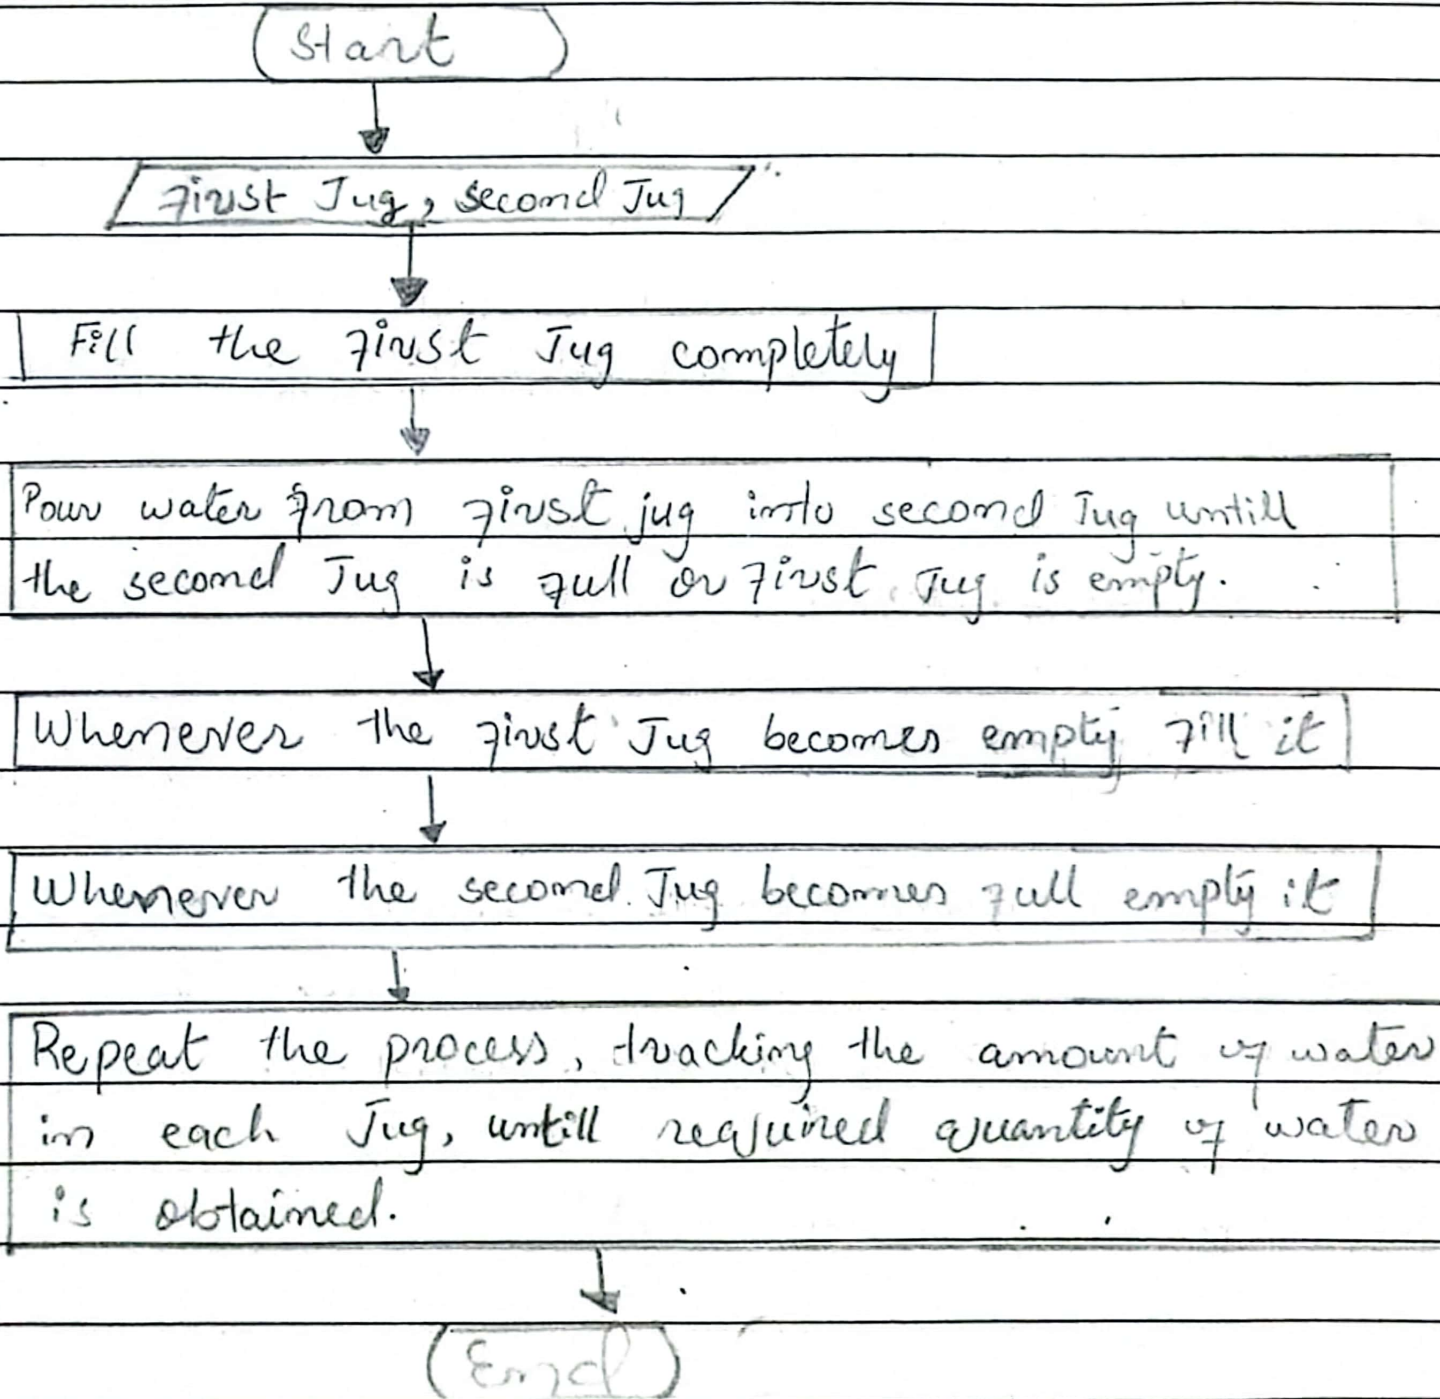 Start
First Jug, second Jug
Fill the first Jug completely
Pour water from first jug into second Jug untill
the second Jug is full or first Jug is empty.
Whenever the first Jug becomes empty fill it
Whenever the second Jug becomes full empty it
Repeat the process, tracking the amount of water
in each Jug, untill required quantity of water
is obtained.
End